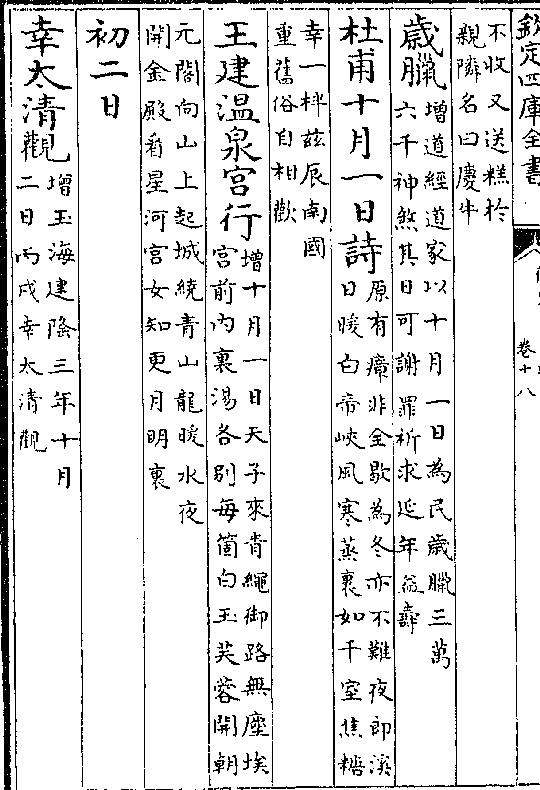 欽定四庫全書
卷十八
不收又送糕於
親隣名曰慶牛
歲臘
増道經道家以十月一日為民歲臘三萬
六千神煞其日可謝罪祈求延年益壽
杜甫十月一日詩
原有瘴非全歇為冬亦不難夜郎溪
日暖白帝峽風寒蒸裹如千室焦糖
幸一柈兹辰南國
重舊俗自相歡
王建溫泉宮行
增十月一日天子來青繩御路無塵埃
宮前内裏湯各别每箇白玉芙蓉開朝
元閣向山上起城繞青山龍暖水夜
開金殿看星河宮女知更月明裏
初二日
幸太清觀
增玉海建隆三年十月
二日丙戌幸太清觀